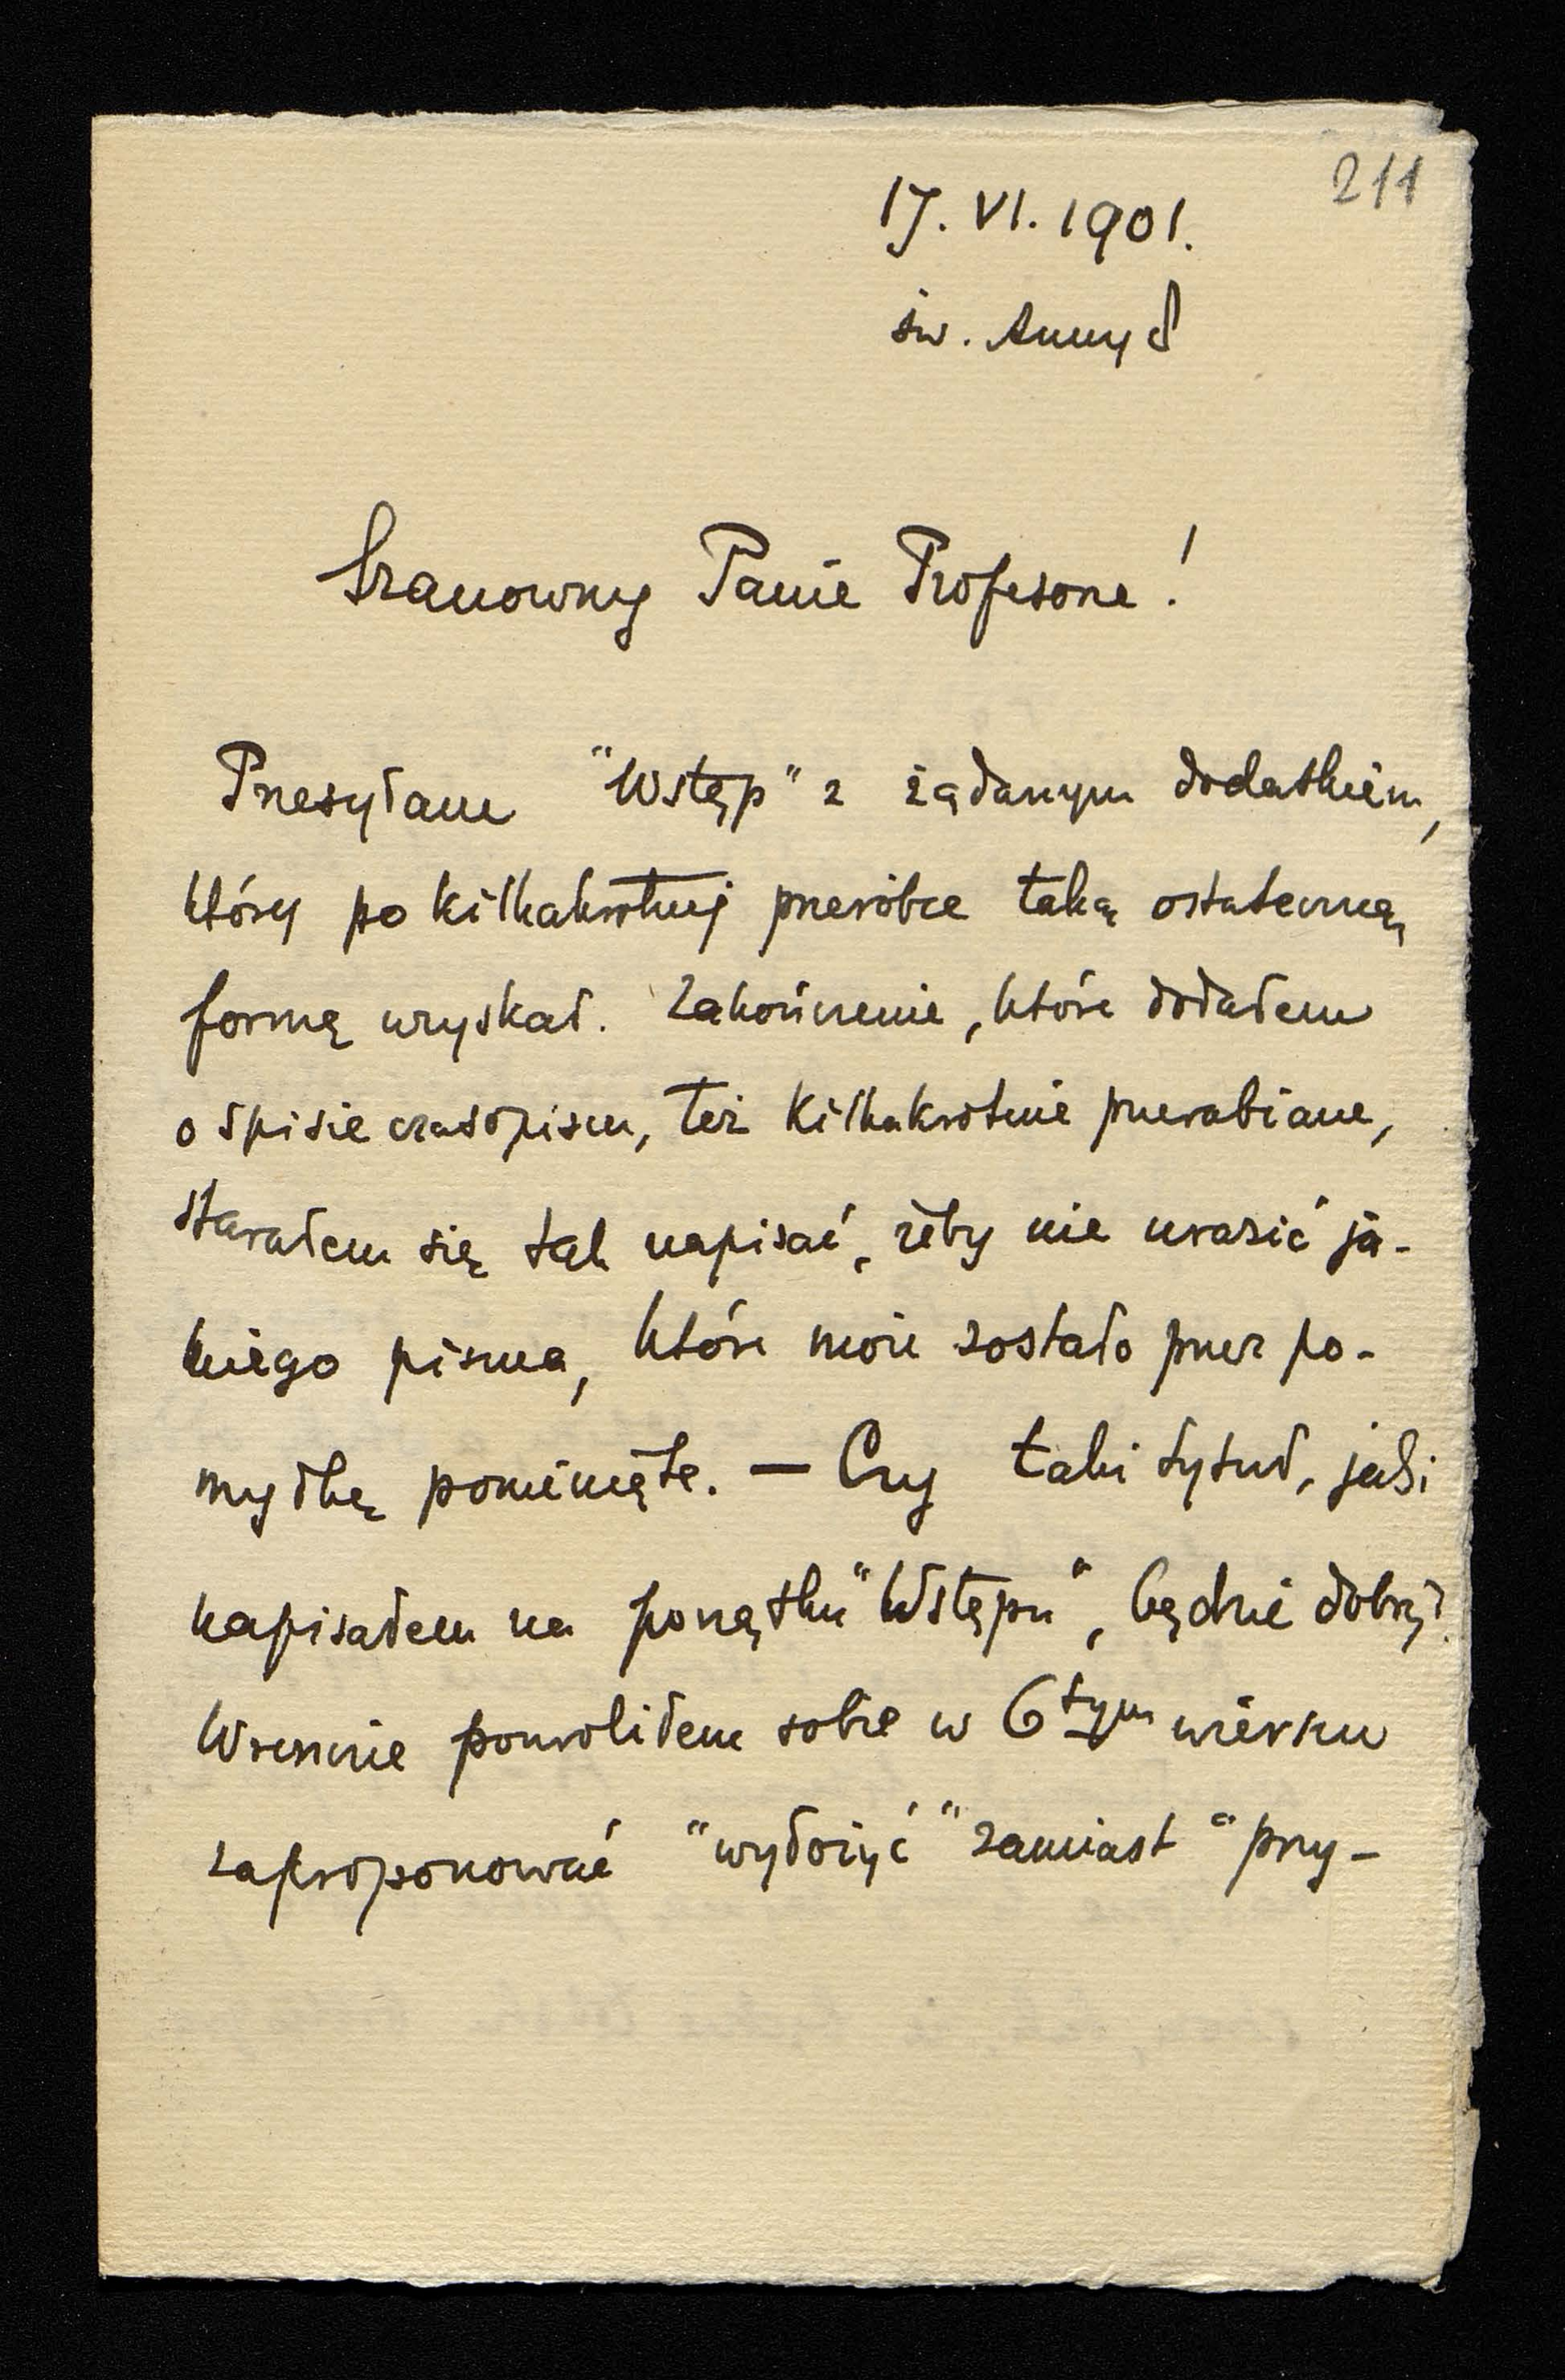 211
17. VI. 1901.
św. Anny 8
Szanowny Panie Profesorze!
Przesyłam "Wstęp" z żądanym dodatkiem,
który po kilkakrotnej przeróbce taką ostateczną
formę uzyskał. Zakończenie, które dodałem
o spisie czasopism, też kilkakrotnie przerabiane,
starałem się tak napisać, żeby nie urazić ja-
kiego pisma, które może zostało przez po-
myłkę pominięte. — Czy taki tytuł, jaki
napisałem na początku "Wstępu", będzie dobry?
Wreszcie pozwoliłem sobie w 6tym wierszu
zaproponować "wyłożyć" zamiast "przy-